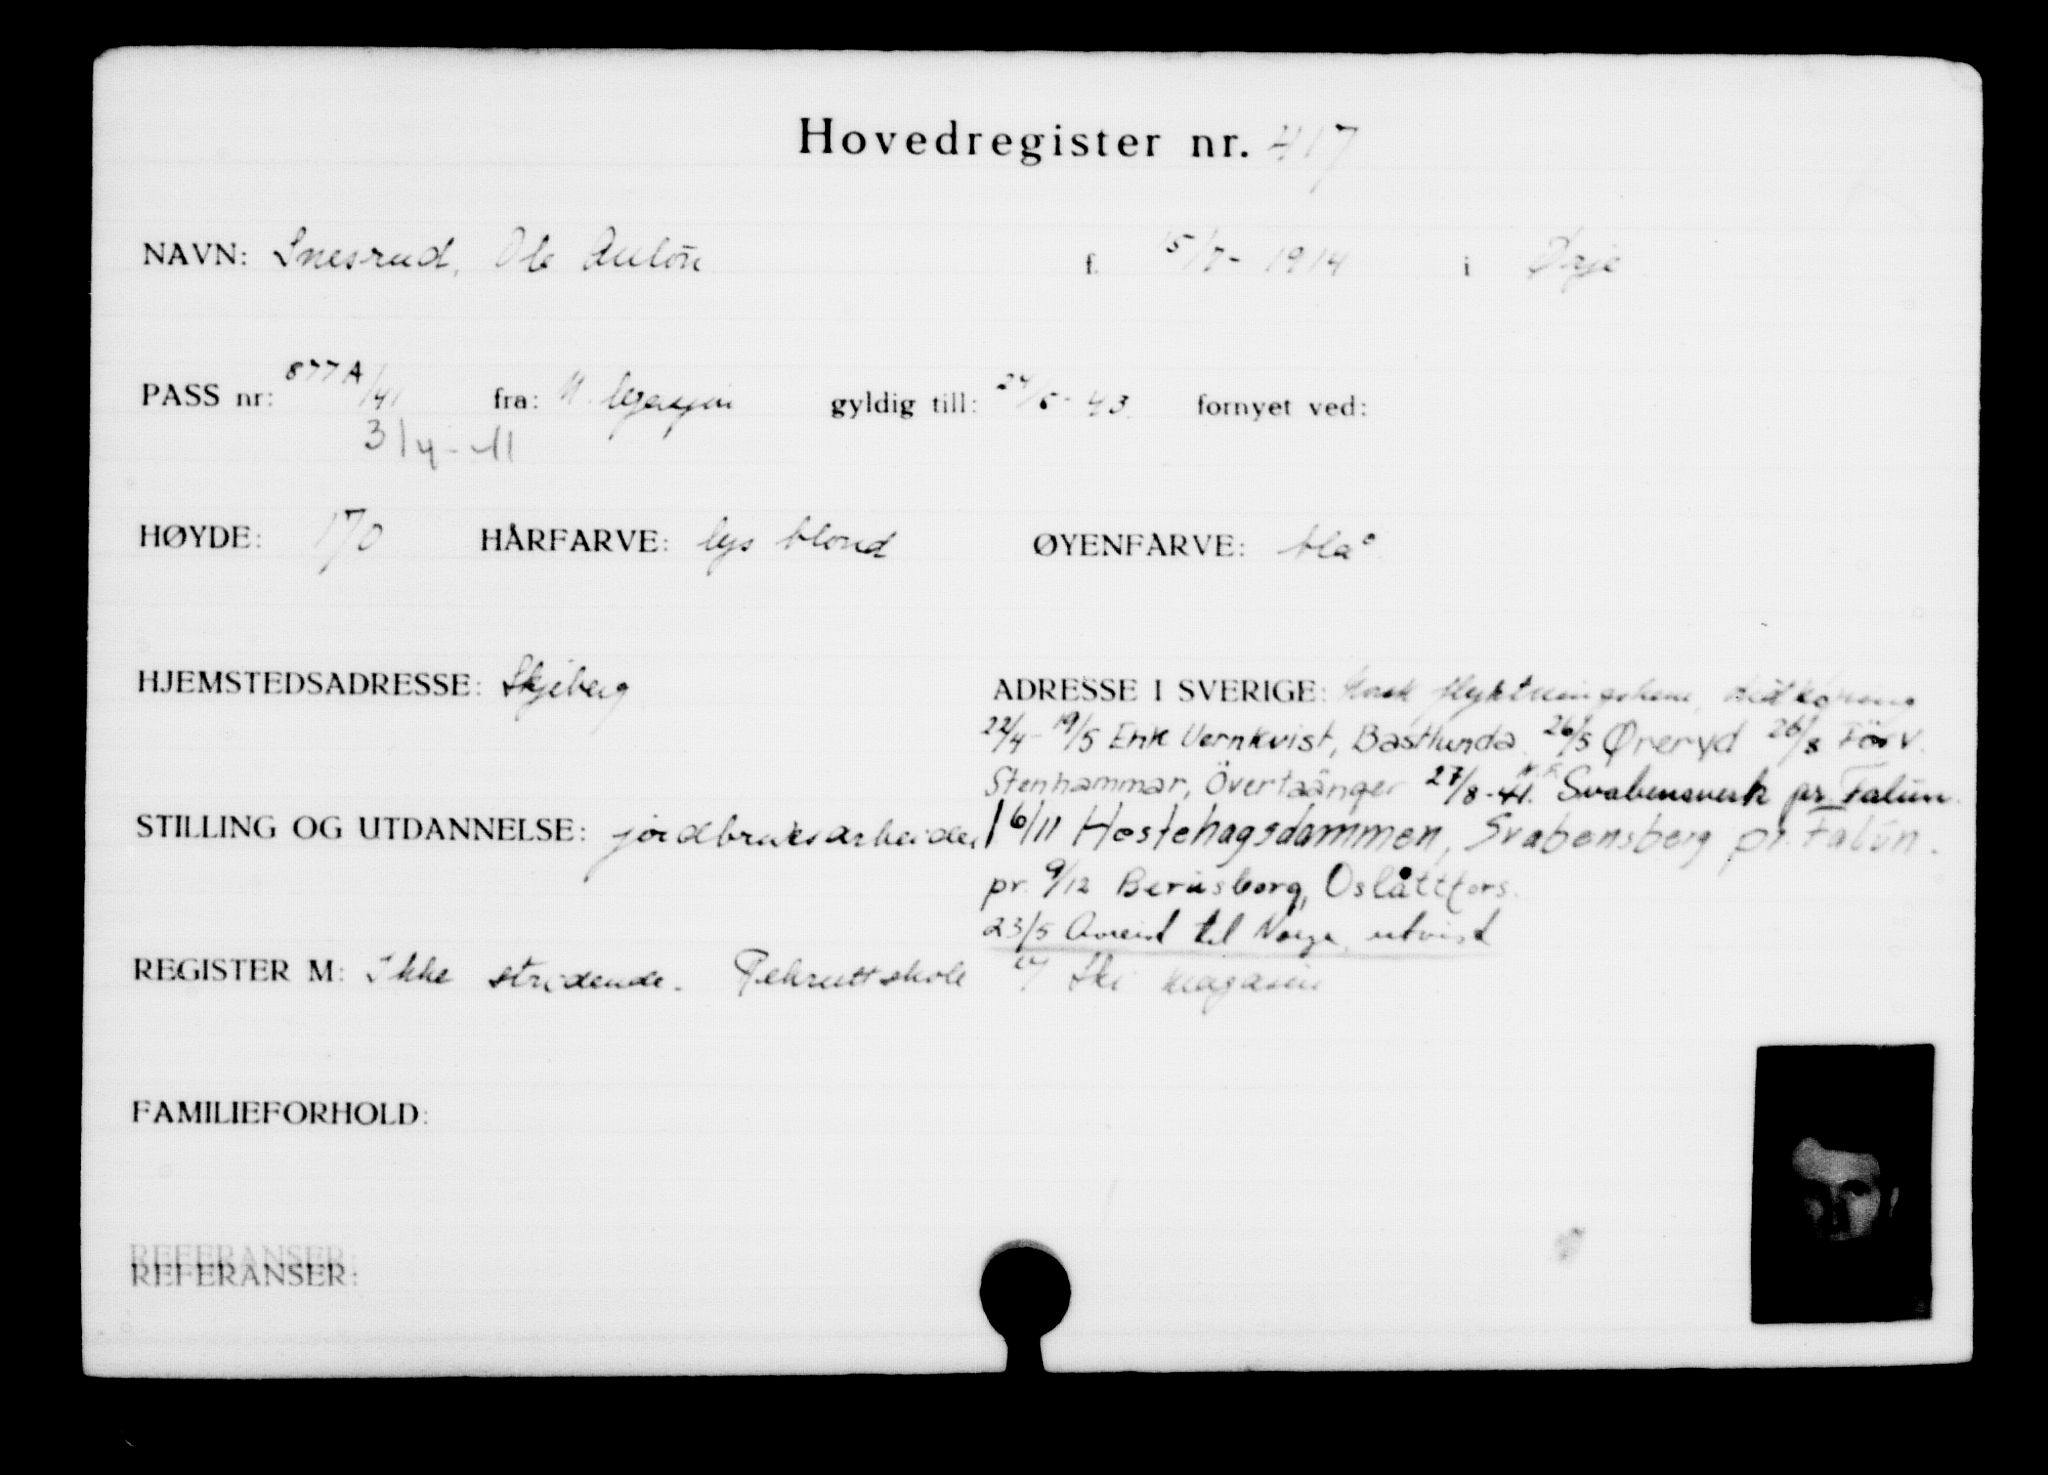 Hovedregister nr. 417
NAVN: Snesrud, Ole Anton f. 15/7- 1914 i Ørje
PASS nr: 877A/41 fra: N. legasjon gyldig till: 24/5- 43. fornyet ved:
3/4-41
HØYDE: 170 HÅRFARVE: lys blond ØYENFARVE: blå
HJEMSTEDSADRESSE: Skjeberg ADRESSE I SVERIGE: Norsk flyktningshem, Lidköping
22/4- 19/5 Erik Vernkvist, Bastlunda 26/5 Øreryd 26/8 Förv.
Stenhammar, Övertäånger 27/8-41. Svabensverk pr Falun.
STILLING OG UTDANNELSE: jordbruksarbeider 16/11 Hestehagsdammen, Svabensberg pr. Falun.
pr. 9/12 Berusborg, Oslåttfors.
23/5 Avreist til Norge, utvist
REGISTER M: Ikke stridende. Rekruttskole Ski magasin
FAMILIEFORHOLD:
REFERANSER:
REFERANSER: